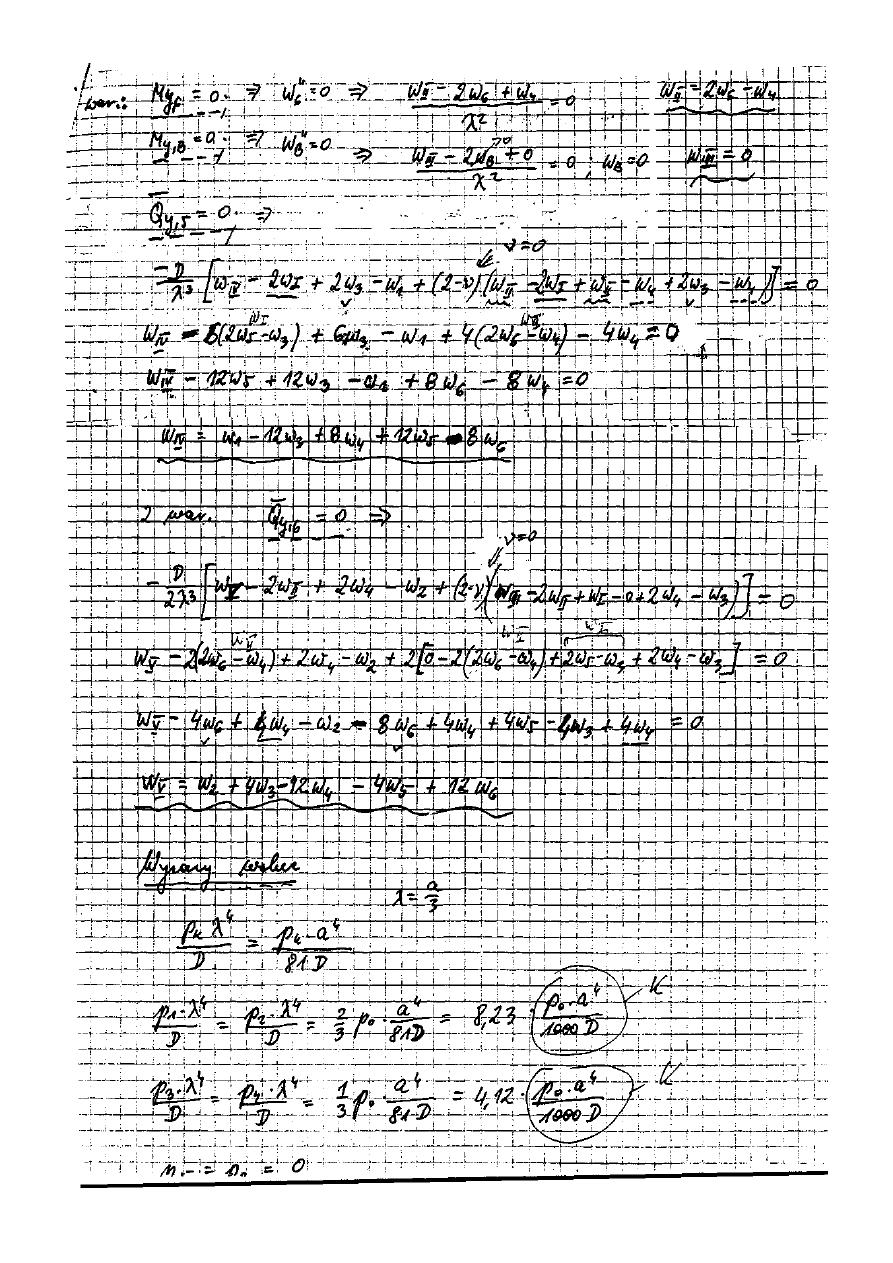 war.: My,f = 0 ⇒ w₆'' = 0 ⇒ (w_II − 2w₆ + w₄)/λ² = 0 w_II = 2w₆ − w₄
My,B = 0 ⇒ w_B'' = 0 ⇒ (w_III − 2w_B + 0)/λ² = 0, w_B = 0 w_III = 0
Q̄y,5 = 0 ⇒
ν = 0
−D/λ³ [w_IV − 2w_I + 2w₃ − w₁ + (2−ν)(w_II − 2w_I + w_II − w₄ + 2w₃ − w₄)] = 0
w_IV − 6(2w₅ − w₃) + 6w₃ − w₁ + 4(2w₆ − w₄) − 4w₄ = 0
w_IV − 12w₅ + 12w₃ − w₁ + 8w₆ − 8w₄ = 0
w_IV = w₁ − 12w₃ + 8w₄ + 12w₅ − 8w₆
2 war. Q̄y,6 = 0 ⇒
ν = 0
− D/2λ³ [w_V − 2w_II + 2w₄ − w₂ + (2−ν)(w_III − 2w_II + w_I − 0 + 2w₄ − w₃)] = 0
w_V − 2(2w₆ − w₄) + 2w₄ − w₂ + 2[0 − 2(2w₆ − w₄) + 2w₅ − w₃ + 2w₄ − w₃] = 0
w_V − 4w₆ + 4w₄ − w₂ − 8w₆ + 4w₄ + 4w₅ − 4w₃ + 4w₄ = 0
w_V = w₂ + 4w₃ − 12w₄ − 4w₅ + 12w₆
Wyrazy wolne
λ = a/3
p_k λ⁴/D = p_k · a⁴/81D
p₁·λ⁴/D = p₂·λ⁴/D = 2/3 p₀ · a⁴/81D = 8,23 · p₀·a⁴/1000D K
p₃·λ⁴/D = p₄·λ⁴/D = 1/3 p₀ · a⁴/81·D = 4,12 · p₀·a⁴/1000D K
= 0